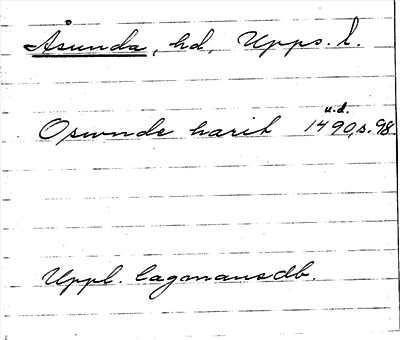 Åsunda, hd, Upps. l.
u.d.
Oswnde harit 1490, s. 98
Uppl. Lagmansdb.